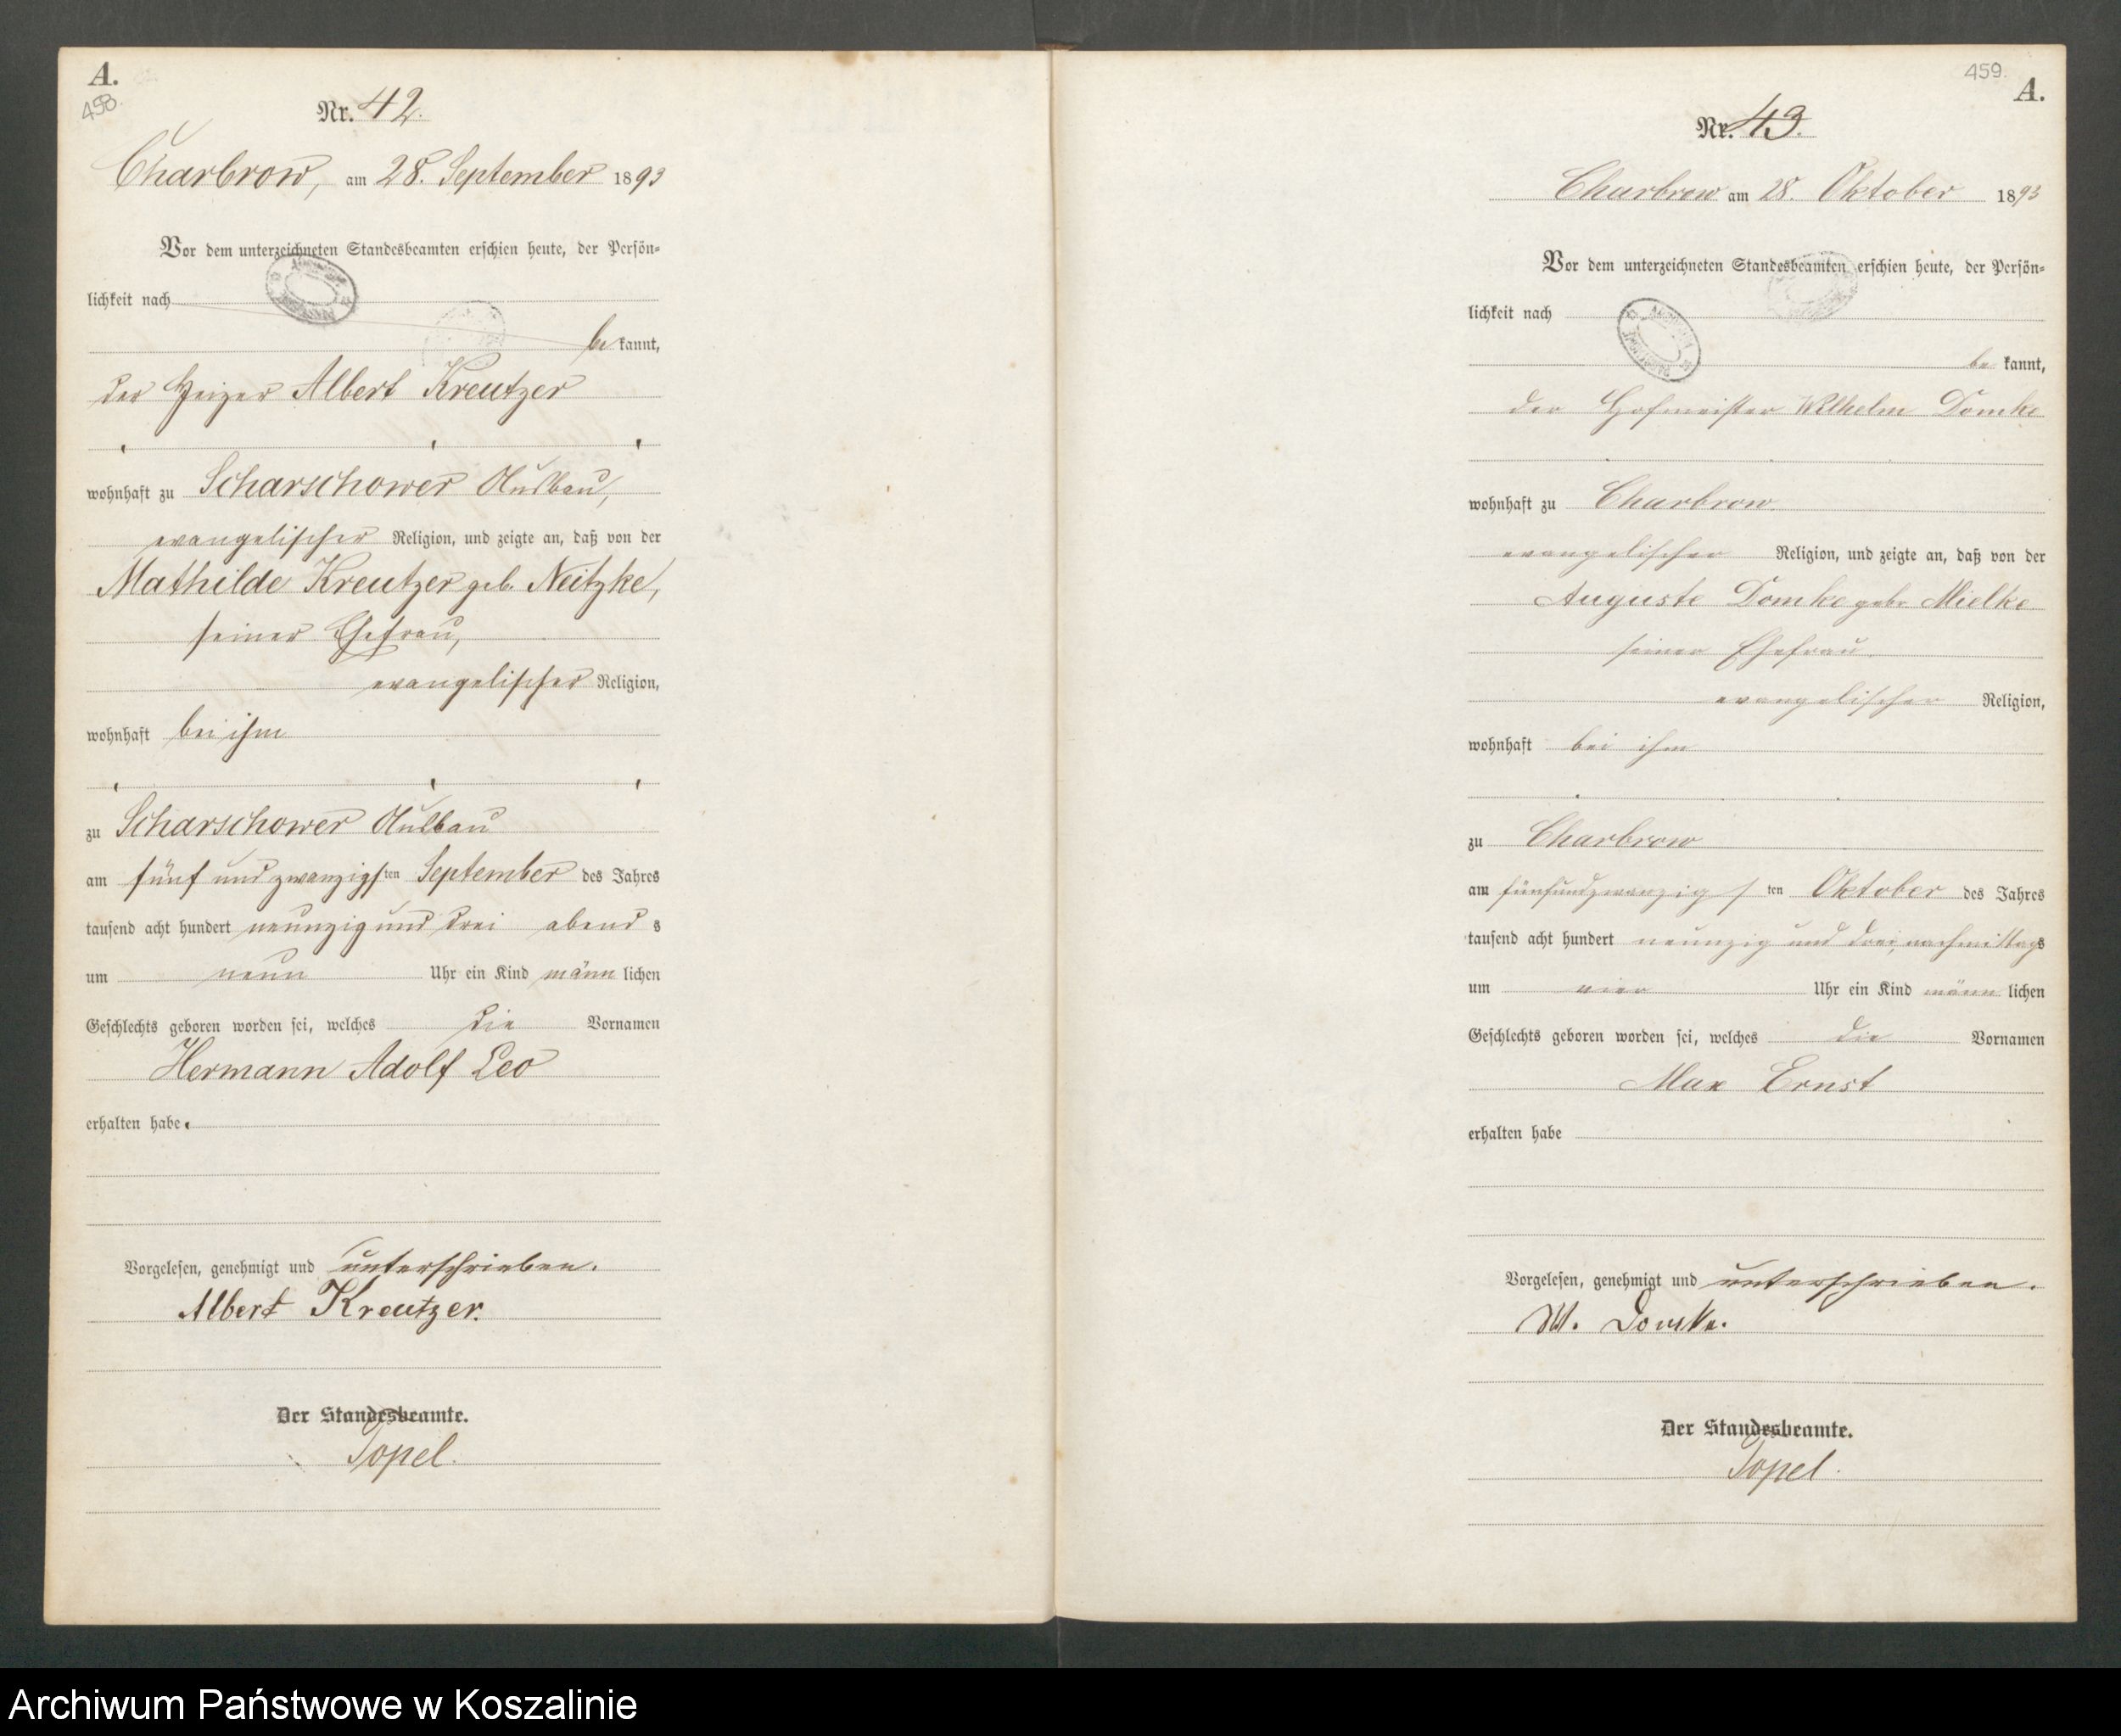 A.
458.
Nr. 42.
Charbrow, am 28. September 1893
Vor dem unterzeichneten Standesbeamten erschien heute, der Persön-
lichkeit nach
be kannt,
der Heizer Albert Kreutzer
wohnhaft zu Scharschower Ausbau,
evangelischer Religion, und zeigte an, daß von der
Mathilde Kreutzer geb. Neitzke,
seiner Ehefrau,
evangelischer Religion,
wohnhaft bei ihm
zu Scharschower Ausbau
am fünf und zwanzigsten September des Jahres
tausend acht hundert neunzig und drei abend s
um neun Uhr ein Kind männ lichen
Geschlechts geboren worden sei, welches die Vornamen
Hermann Adolf Leo
erhalten habe.
Vorgelesen, genehmigt und unterschrieben.
Albert Kreutzer.
Der Standesbeamte.
Topel.
459.
A.
Nr. 43.
Charbrow am 28. Oktober 1893
Vor dem unterzeichneten Standesbeamten erschien heute, der Persön-
lichkeit nach
be kannt,
der Hofmeister Wilhelm Domke
wohnhaft zu Charbrow
evangelischer Religion, und zeigte an, daß von der
Auguste Domke gebr. Mielke
seiner Ehefrau
evangelischer Religion,
wohnhaft bei ihm
zu Charbrow
am fünfundzwanzigs ten Oktober des Jahres
tausend acht hundert neunzig und drei, nachmittags
um vier Uhr ein Kind männ lichen
Geschlechts geboren worden sei, welches die Vornamen
Max Ernst
erhalten habe
Vorgelesen, genehmigt und unterschrieben.
W. Domke.
Der Standesbeamte.
Topel.
Archiwum Państwowe w Koszalinie